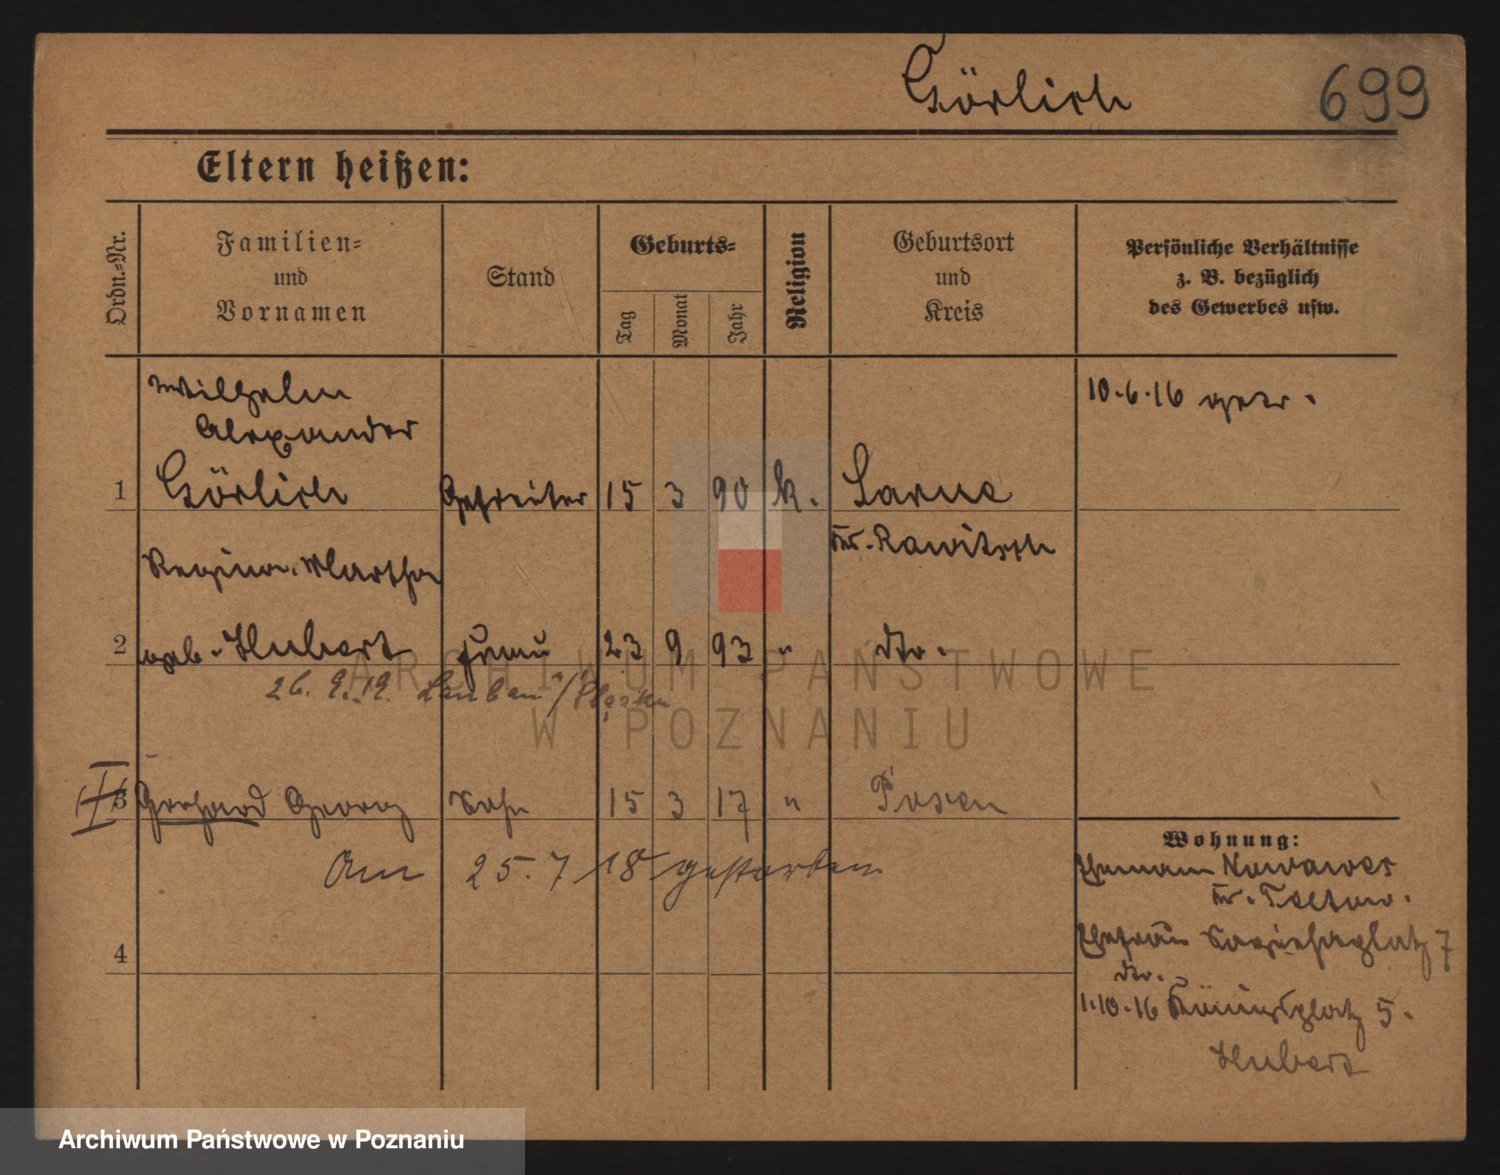 Görlich
699
Eltern heißen:
Ordn.-Nr.
Familien-
und
Vornamen
Stand
Geburts-
Tag
Monat
Jahr
Religion
Geburtsort
und
Kreis
Persönliche Verhältnisse
z. B. bezüglich
des Gewerbes usw.
Wilhelm
Alexander
10.6.16 getr.
1 Görlich Gefreiter 15 3 90 k. Sarne
Kr. Rawitsch
Regina Martha
2 geb. Hubert Frau 23 9 93 " dto.
26. 9. 19. Lauban /
3 Gerhard Georg Sohn 15 3 17 " Posen
Am 25. 7 18 gestorben
Wohnung:
Ehemann Nowawes
Kr. Teltow.
Ehefrau Sapiehaplatz 7
dto.
1.10.16 Königsplatz 5.
Hubert
4
ARCHIWUM PAŃSTWOWE
W POZNANIU
Archiwum Państwowe w Poznaniu